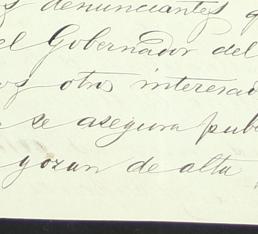 s denunciantes q
el Gobernador del
os otros interesad
se asegura pub
gozan de alta